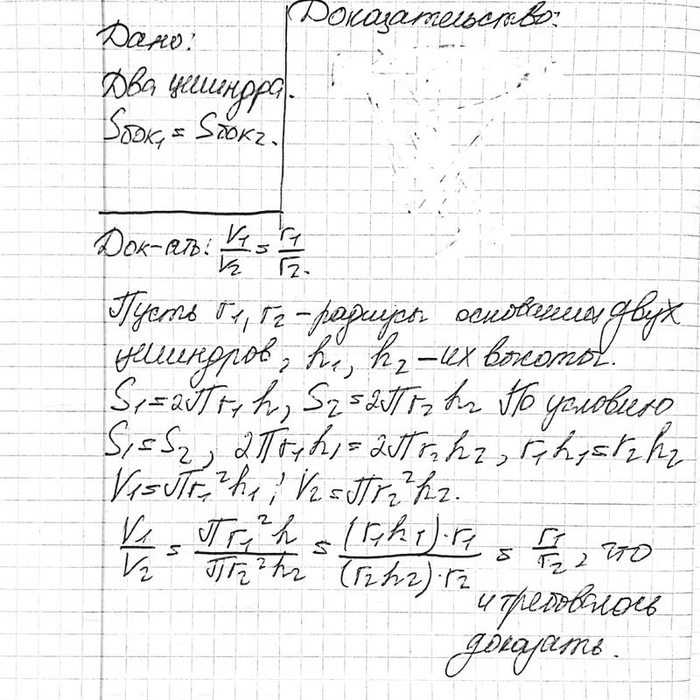 Дано:
Два цилиндра.
Sбок₁ = Sбок₂.
Доказательство:
Док-ать: V₁/V₂ = r₁/r₂.
Пусть r₁, r₂ – радиусы основания двух
цилиндров, h₁, h₂ – их высоты.
S₁ = 2πr₁h, S₂ = 2πr₂h₂ По условию
S₁ = S₂, 2πr₁h₁ = 2πr₂h₂, r₁h₁ = r₂h₂
V₁ = πr₁²h₁; V₂ = πr₂²h₂.
V₁/V₂ = πr₁²h/πr₂²h₂ = (r₁h₁)·r₁/(r₂h₂)·r₂ = r₁/r₂, что
и требовалось
доказать.